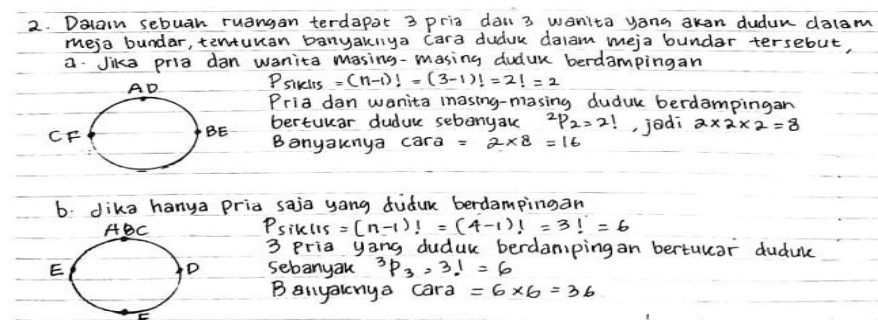 2. Dalam sebuah ruangan terdapat 3 pria dan 3 wanita yang akan duduk dalam
meja bundar, tentukan banyaknya cara duduk dalam meja bundar tersebut,
a. Jika pria dan wanita masing-masing duduk berdampingan
AD
CF
BE
Psiklis = (n-1)! = (3-1)! = 2! = 2
Pria dan wanita masing-masing duduk berdampingan
bertukar duduk sebanyak ²P₂ = 2!, jadi 2×2×2 = 8
Banyaknya cara = 2×8 = 16
b. Jika hanya pria saja yang duduk berdampingan
ABC
E
D
F
Psiklis = (n-1)! = (4-1)! = 3! = 6
3 pria yang duduk berdampingan bertukar duduk
sebanyak ³P₃ = 3! = 6
Banyaknya cara = 6×6 = 36